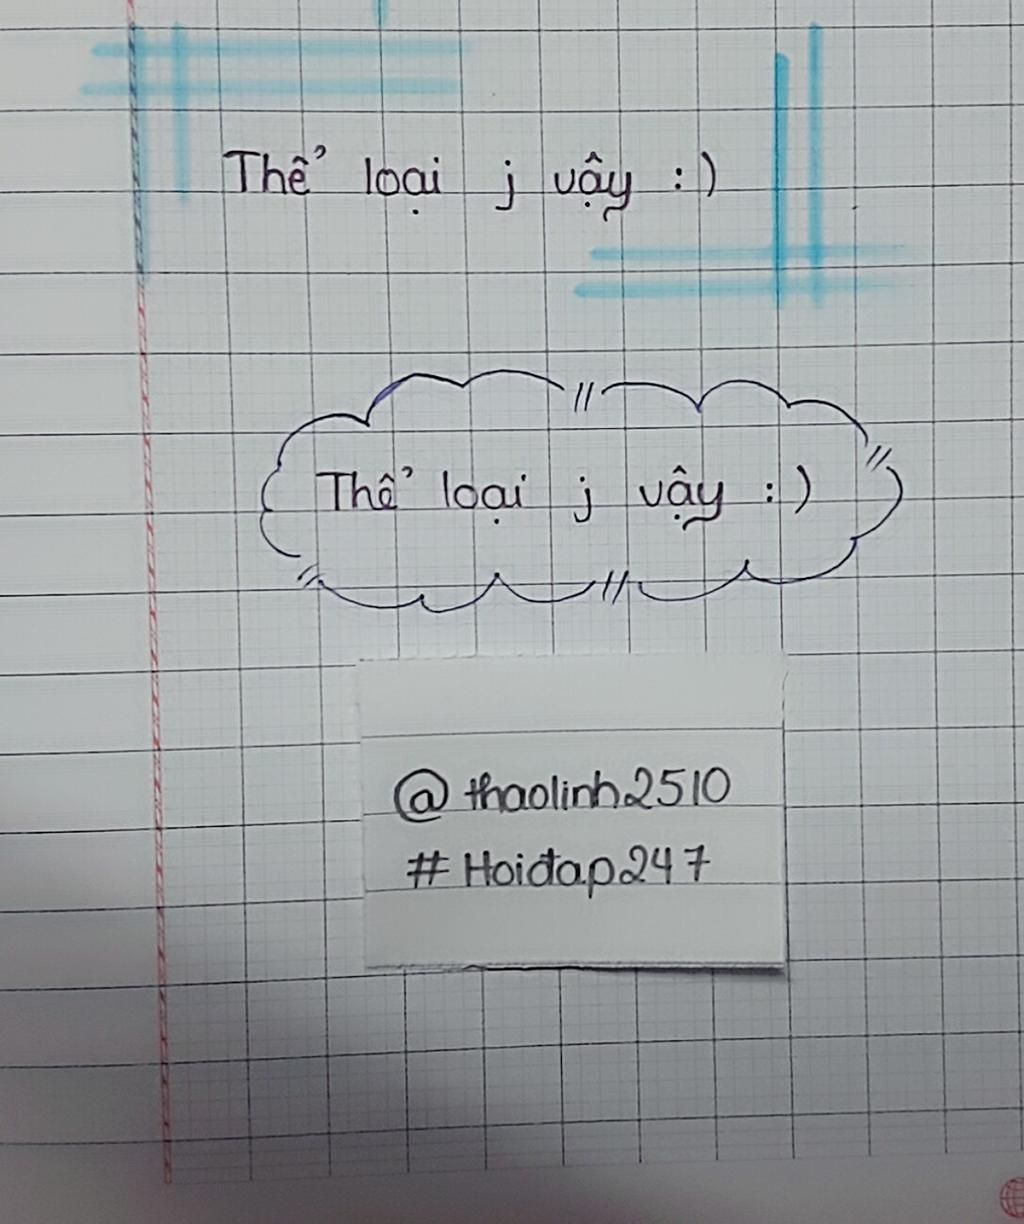 Thể loại j vậy :)
Thể loại j vậy :)
@thaolinh2510
#Hoiđap247